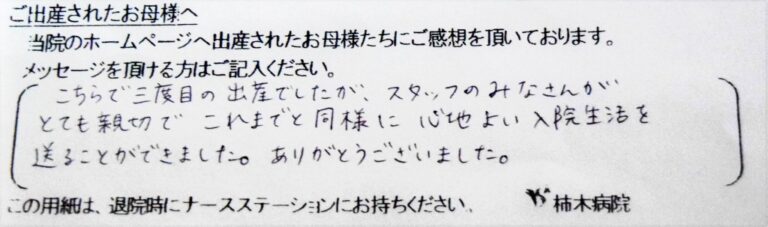 ご出産されたお母様へ
当院のホームページへ出産されたお母様たちにご感想を頂いております。
メッセージを頂ける方はご記入ください。
こちらで三度目の出産でしたが、スタッフのみなさんが
とても親切で これまでと同様に 心地よい入院生活を
送ることができました。ありがとうございました。
この用紙は、退院時にナースステーションにお持ちください。 柿木病院